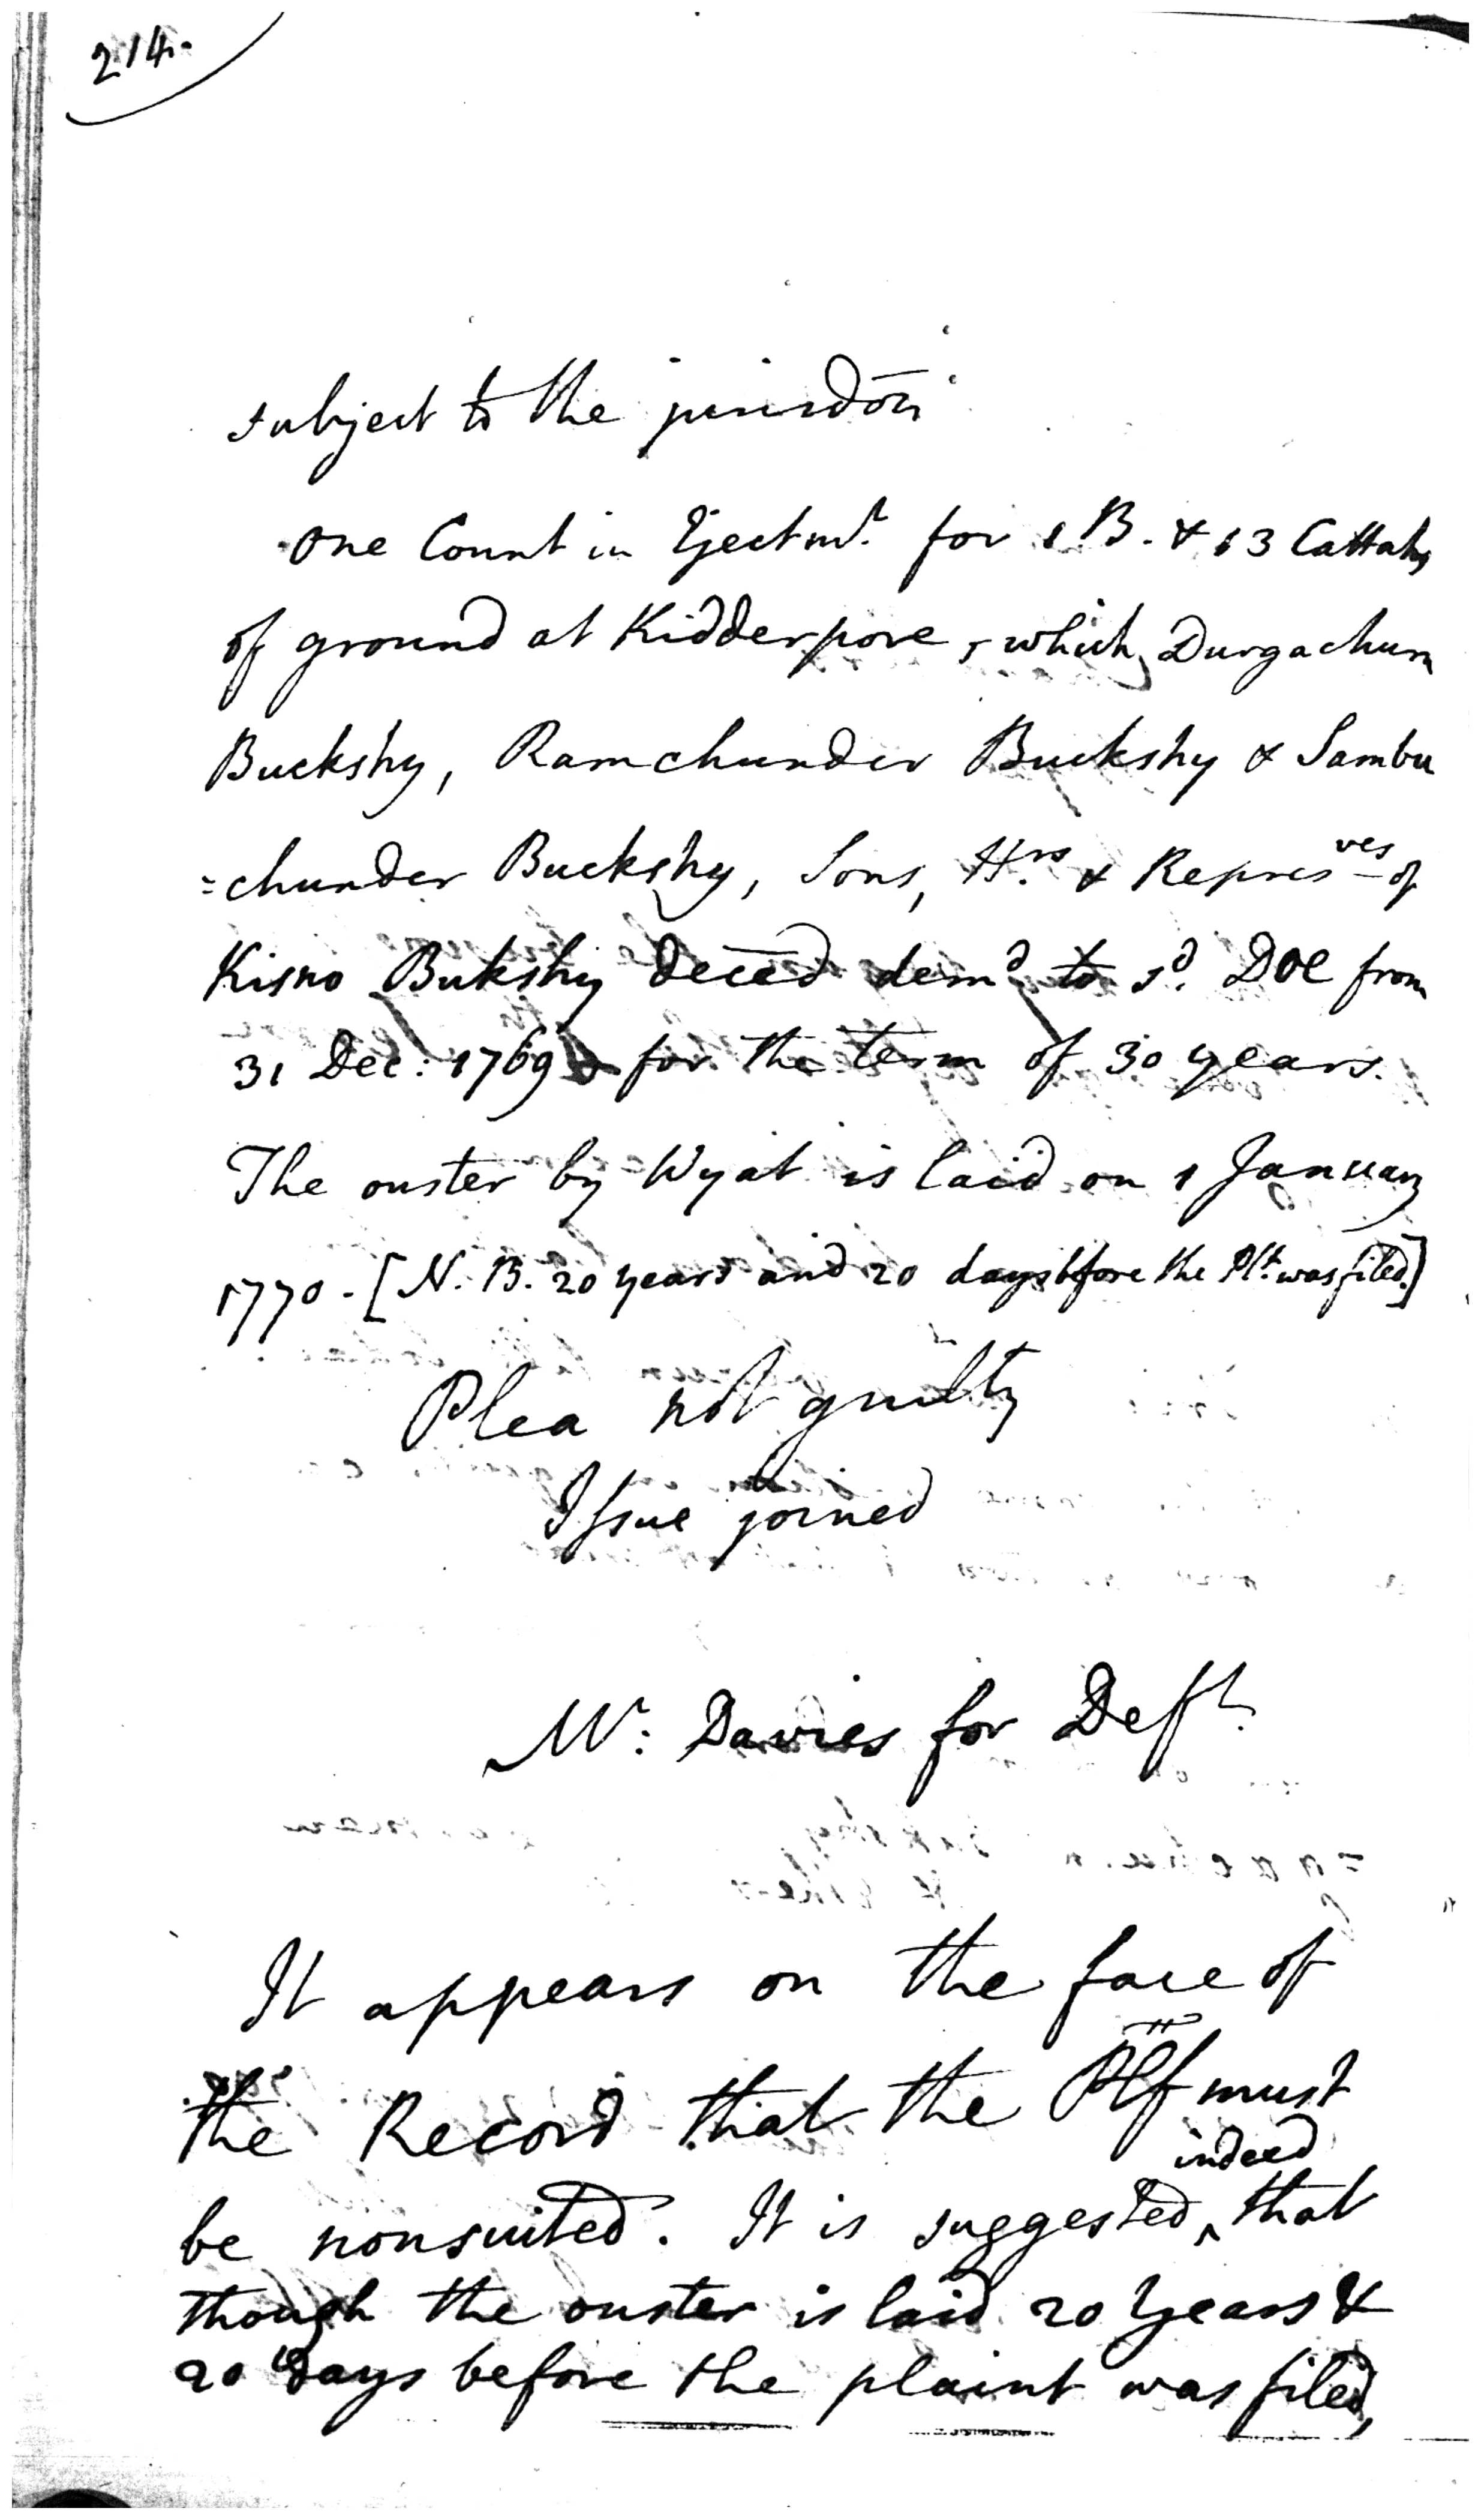 214.
subject to the jurisdōn
One Count in Ejectmt. for 1 B. & 13 Cattahs
of ground at Kidderpore, which Durgachurn
Buckshy, Ramchunder Buckshy & Sambu
=chunder Buckshy, Sons, Hrs. & Represves of
Kisno Bukshy decēd demd. to sd. Doe from
31 Dec: 1769 for the term of 30 years.
The ouster by Wyat is laid on 1 January
1770 - [N. B. 20 years and 20 days before the Plt. was filed.]
Plea not guilty
Issue joined
Mr: Davies for Defft.
It appears on the face of
the Record that the Plf must
indeed
be nonsuited. It is suggested, ^ that
though the ouster is laid 20 Years &
20 Days before the plaint was filed,